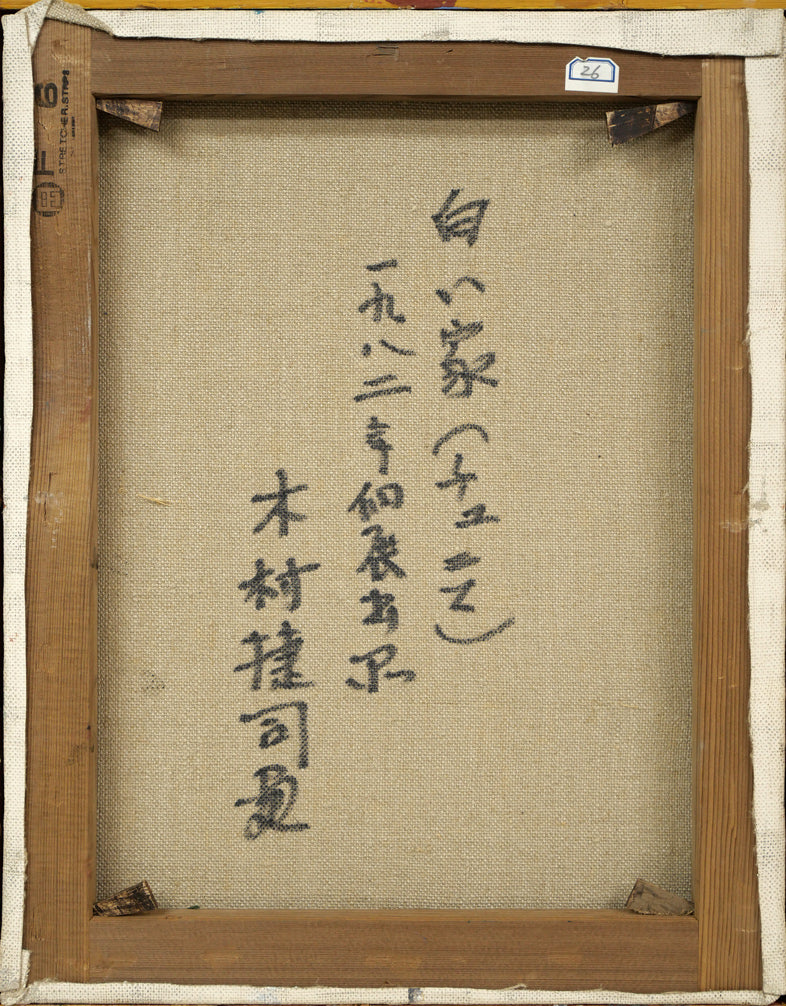 26
白い家(チュニス)
一九八二年個展出品
木村捷司画
F 6